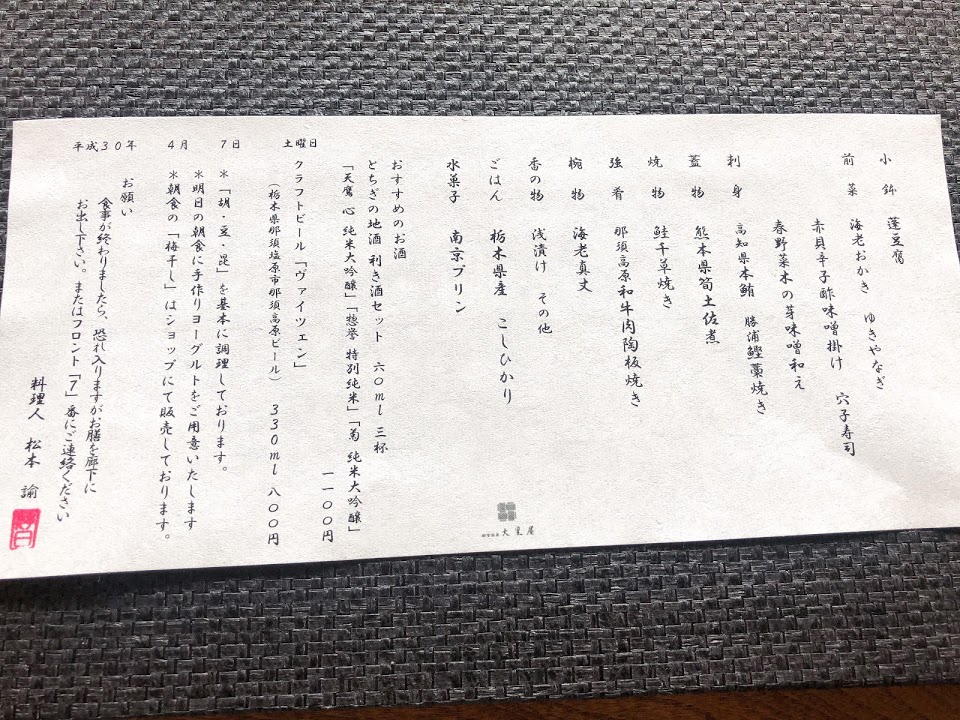 小鉢 蓬豆腐
前菜 海老おかき ゆきやなぎ
赤貝辛子酢味噌掛け 穴子寿司
春野菜木の芽味噌和え
刺身 高知県本鮪 勝浦鰹藁焼き
蓋物 熊本県筍土佐煮
焼物 鮭千草焼き
強肴 那須高原和牛肉陶板焼き
椀物 海老真丈
香の物 浅漬け その他
ごはん 栃木県産 こしひかり
水菓子 南京プリン
おすすめのお酒
とちぎの地酒 利き酒セット 六0ml 三杯
「天鷹 心 純米大吟醸」「惣誉 特別純米」「菊 純米大吟醸」
一一00円
クラフトビール「ヴァイツェン」
(栃木県那須塩原市那須高原ビール) 330ml 八00円
*「胡・豆・昆」を基本に調理しております。
*明日の朝食に手作りヨーグルトをご用意いたします
*朝食の「梅干し」はショップにて販売しております。
お願い
食事が終わりましたら、恐れ入りますがお膳を廊下に
お出し下さい。またはフロント「7」番にご連絡ください
料理人 松本 諭
平成30年 4月 7日 土曜日
大黒屋